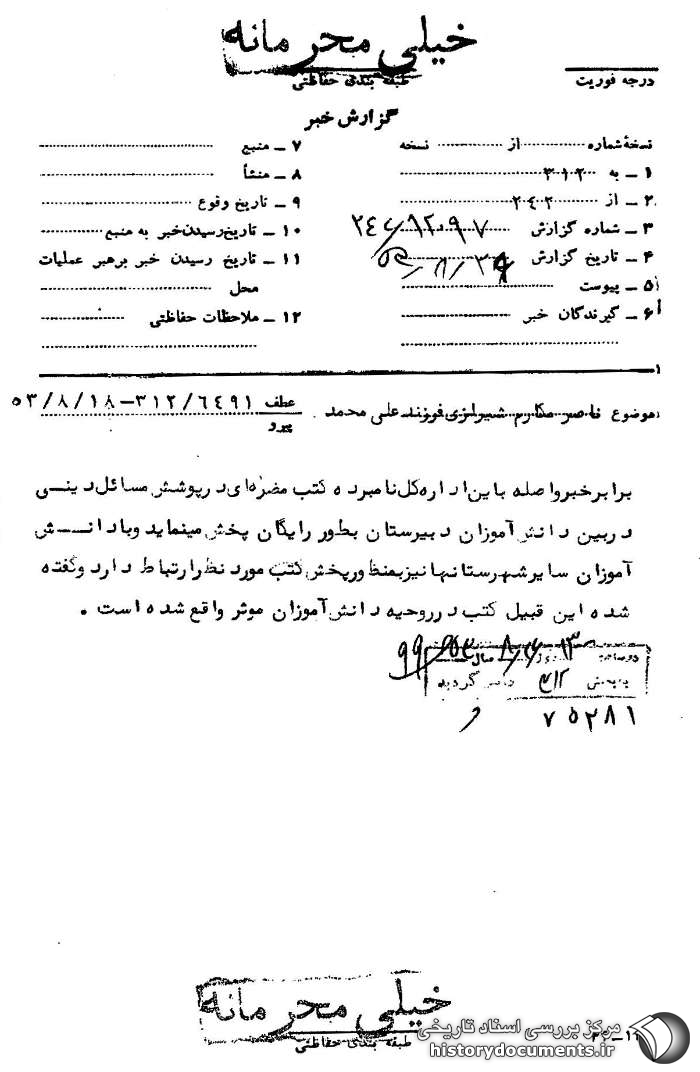 خیلی محرمانه
طبقه بندی حفاظتی
درجه فوریت
گزارش خبر
نسخهٔ شماره .......... از .......... نسخه
۱ ـ به ۳۱۲
۲ ـ از ۲۴۲
۳ ـ شماره گزارش
۴ ـ تاریخ گزارش
۵ ـ پیوست
۶ ـ گیرندگان خبر
۷ ـ منبع
۸ ـ منشأ
۹ ـ تاریخ وقوع
۱۰ ـ تاریخ رسیدن خبر به منبع
۱۱ ـ تاریخ رسیدن خبر برهبر عملیات
محل
۱۲ ـ ملاحظات حفاظتی
موضوع ناصر مکارم شیرازی فرزند علی محمد . عطف ۳۱۲/۶۴۹۱ – ۵۳/۸/۱۸
پیرو
برابر خبر واصله باین اداره کل نامبرده کتب مضره‌ای در پوشش مسائل دینی
در بین دانش آموزان دبیرستان بطور رایگان پخش مینماید و با دانش
آموزان سایر شهرستانها نیز بمنظور پخش کتب مورد نظر ارتباط دارد و گفته
شده این قبیل کتب در روحیه دانش آموزان موثر واقع شده است .
بخش ۳۱۲ گردید
۷۵۲۸۱
خیلی محرمانه
طبقه بندی حفاظتی
مرکز بررسی اسناد تاریخی
historydocuments.ir